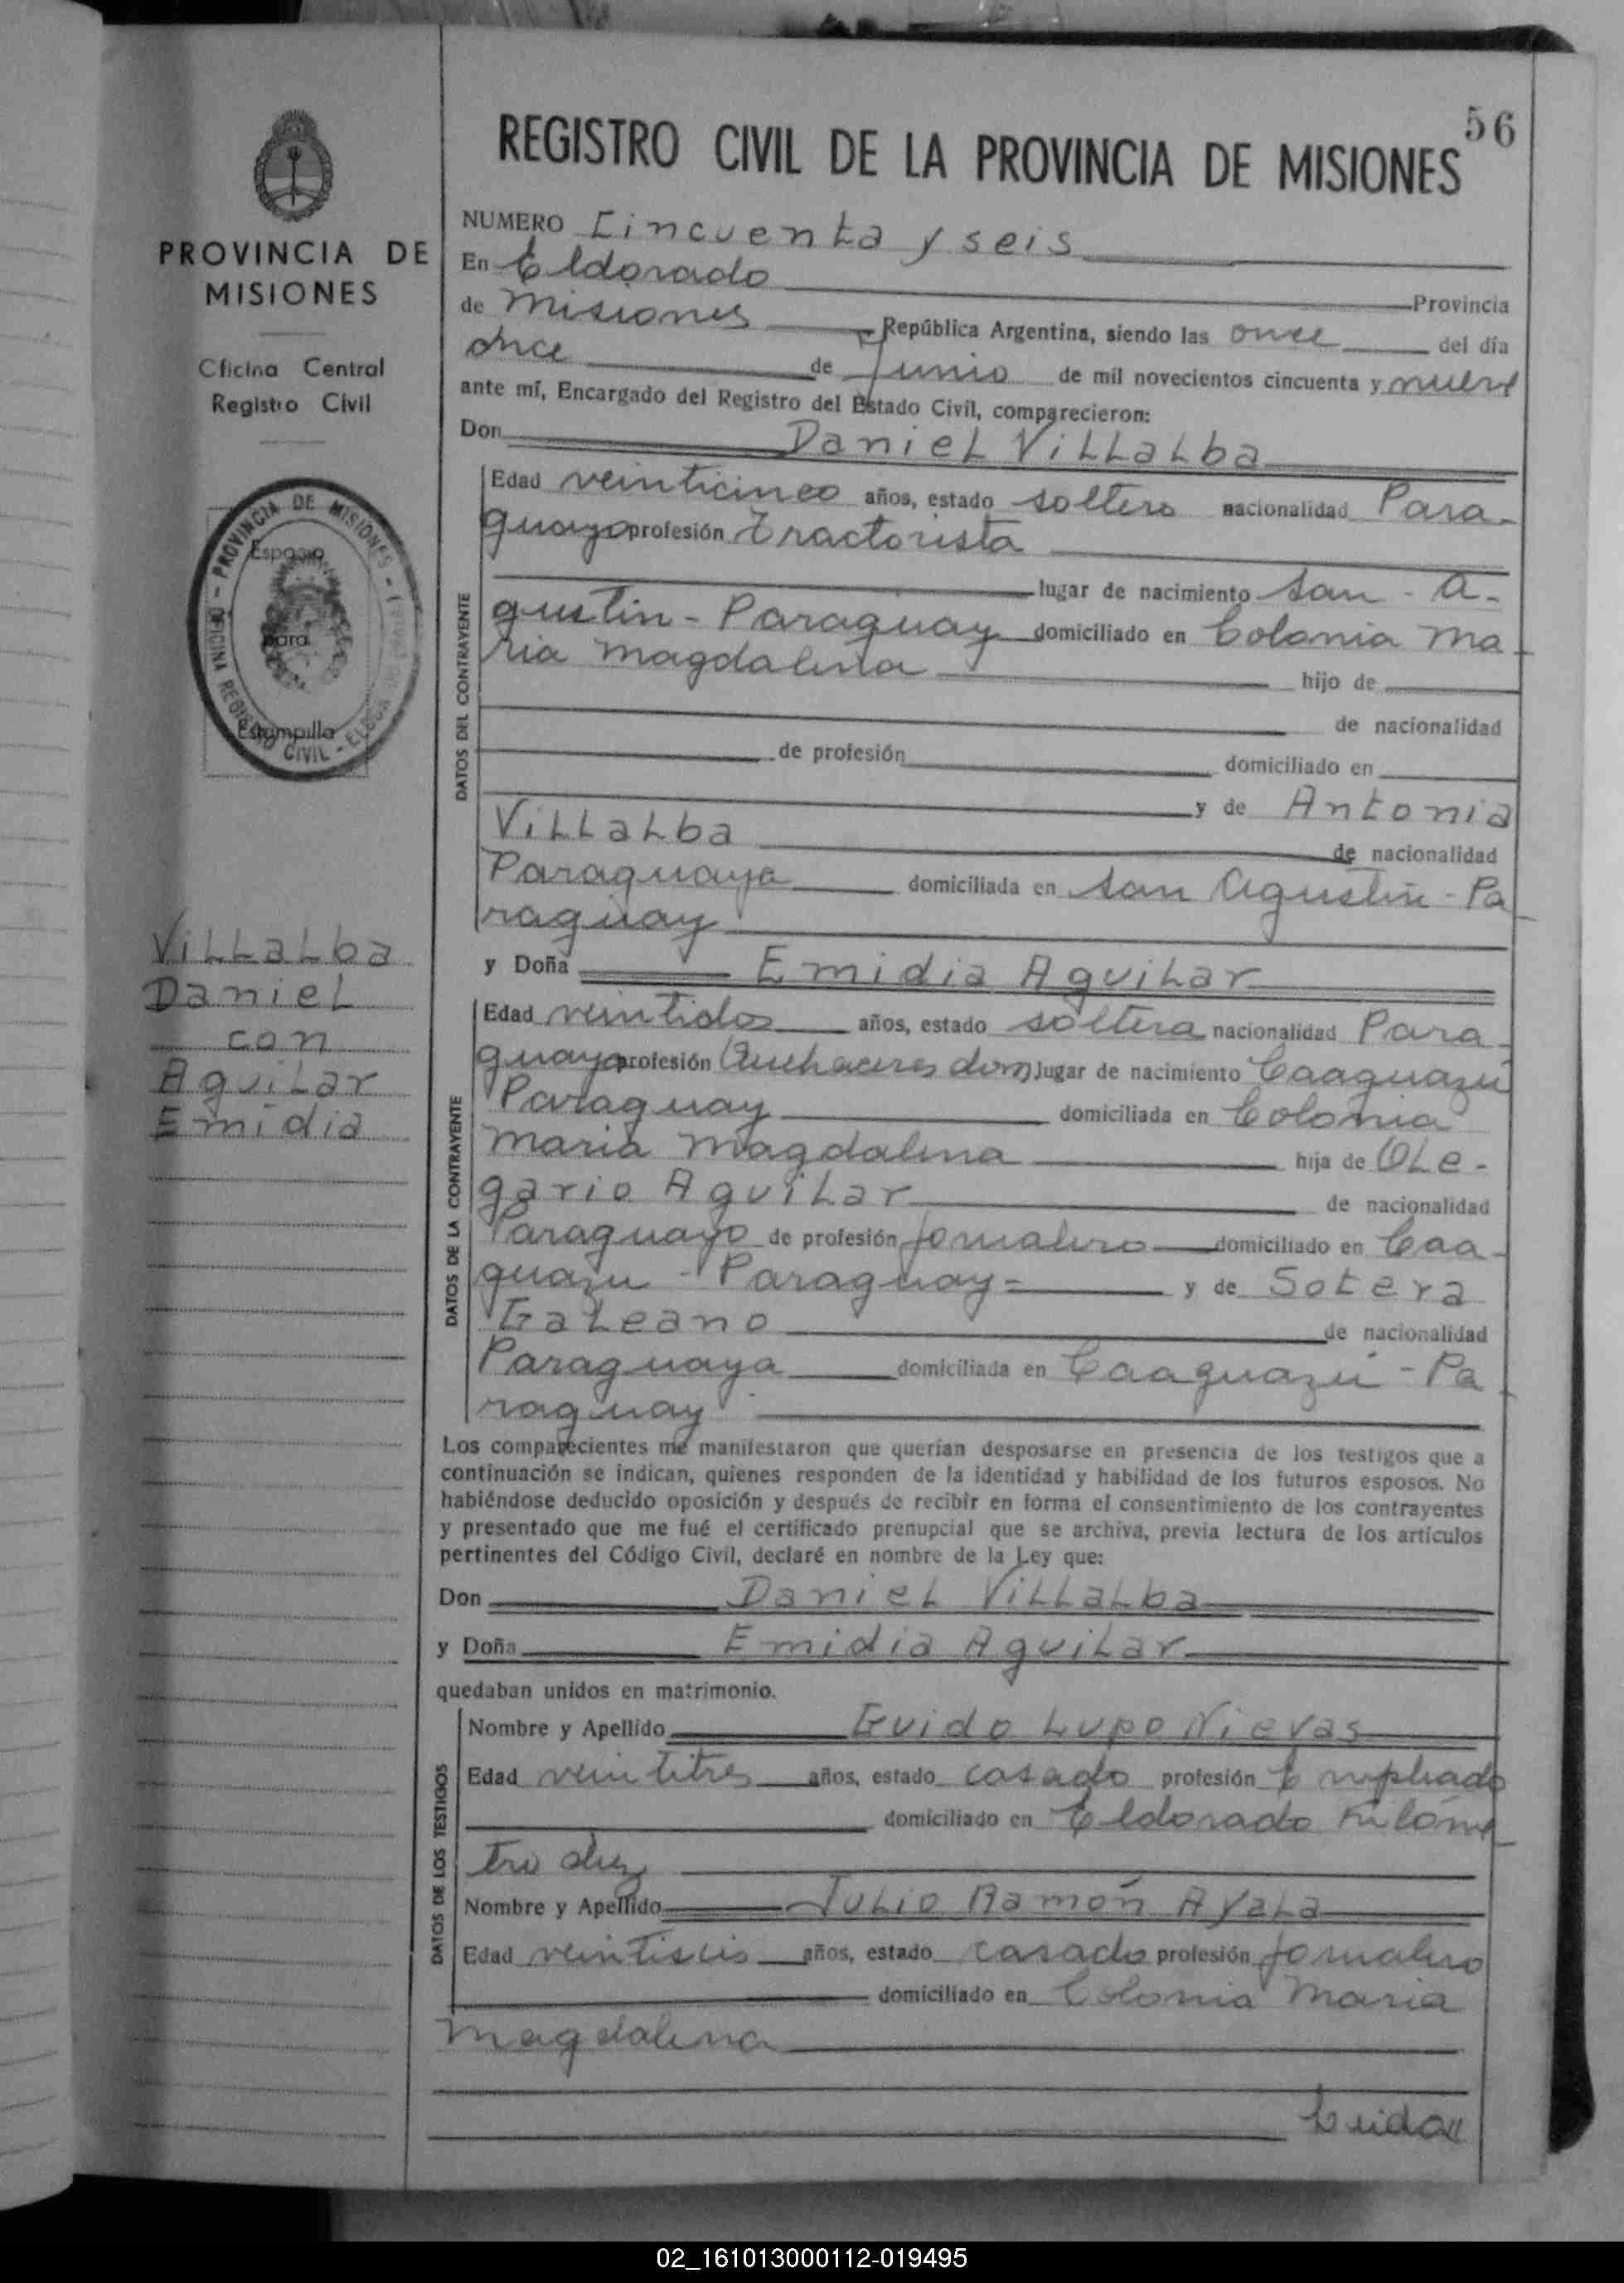 56
REGISTRO CIVIL DE LA PROVINCIA DE MISIONES
PROVINCIA DE
MISIONES
Oficina Central
Registro Civil
PROVINCIA DE MISIONES
OFICINA REGISTRO CIVIL
Espacio
para
Estampilla
Villalba
Daniel
con
Aguilar
Emidia
NUMERO Cincuenta y seis
En Eldorado
Provincia
de Misiones República Argentina, siendo las once del día
once de Junio de mil novecientos cincuenta y nueve
ante mí, Encargado del Registro del Estado Civil, comparecieron:
Don Daniel Villalba
DATOS DEL CONTRAYENTE
Edad veinticinco años, estado soltero nacionalidad Para-
guayo profesión Tractorista
lugar de nacimiento San A-
gustin - Paraguay domiciliado en Colonia Ma-
ria Magdalena hijo de
de nacionalidad
de profesión domiciliado en
y de Antonia
Villalba de nacionalidad
Paraguaya domiciliada en San Agustin - Pa-
raguay
y Doña Emidia Aguilar
DATOS DE LA CONTRAYENTE
Edad veintidos años, estado soltera nacionalidad Para-
guaya profesión Quehaceres dom, lugar de nacimiento Caaguazú
Paraguay domiciliada en Colonia
Maria Magdalena hija de Ole-
gario Aguilar de nacionalidad
Paraguayo de profesión Jornalero domiciliado en Caa-
guazu - Paraguay - y de Sotera
Galeano de nacionalidad
Paraguaya domiciliada en Caaguazú - Pa-
raguay
Los comparecientes me manifestaron que querían desposarse en presencia de los testigos que a
continuación se indican, quienes responden de la identidad y habilidad de los futuros esposos. No
habiéndose deducido oposición y después de recibir en forma el consentimiento de los contrayentes
y presentado que me fué el certificado prenupcial que se archiva, previa lectura de los artículos
pertinentes del Código Civil, declaré en nombre de la Ley que:
Don Daniel Villalba
y Doña Emidia Aguilar
quedaban unidos en matrimonio.
DATOS DE LOS TESTIGOS
Nombre y Apellido Guido Lupo Nievas
Edad veintitres años, estado casado profesión Empleado
domiciliado en Eldorado Kilóme-
tro diez
Nombre y Apellido Julio Ramón Ayala
Edad veintiseis años, estado casado profesión Jornalero
domiciliado en Colonia Maria
Magdalena
Leida//
02_161013000112-019495